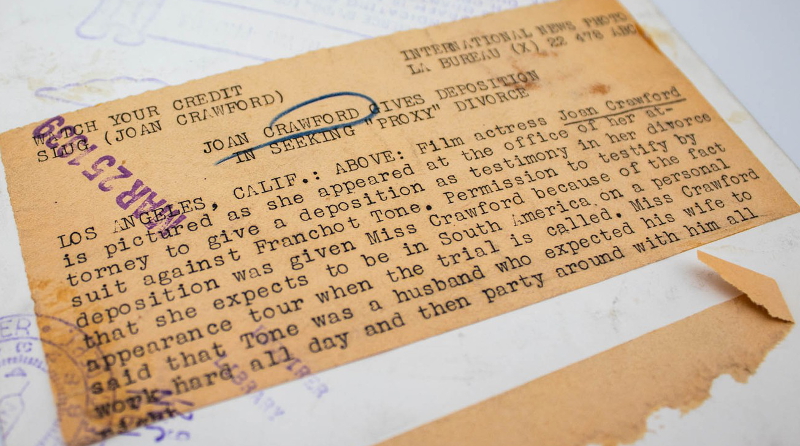 INTERNATIONAL NEWS PHOTO
LA BUREAU (X) 22 478 ABC
WATCH YOUR CREDIT
SLUG (JOAN CRAWFORD)
JOAN CRAWFORD GIVES DEPOSITION
IN SEEKING "PROXY" DIVORCE
MAR 25 1939
LOS ANGELES, CALIF.: ABOVE: Film actress Joan Crawford
is pictured as she appeared at the office of her at-
torney to give a deposition as testimony in her divorce
suit against Franchot Tone. Permission to testify by
deposition was given Miss Crawford because of the fact
that she expects to be in South America on a personal
appearance tour when the trial is called. Miss Crawford
said that Tone was a husband who expected his wife to
work hard all day and then party around with him all
night.
LIBRARY